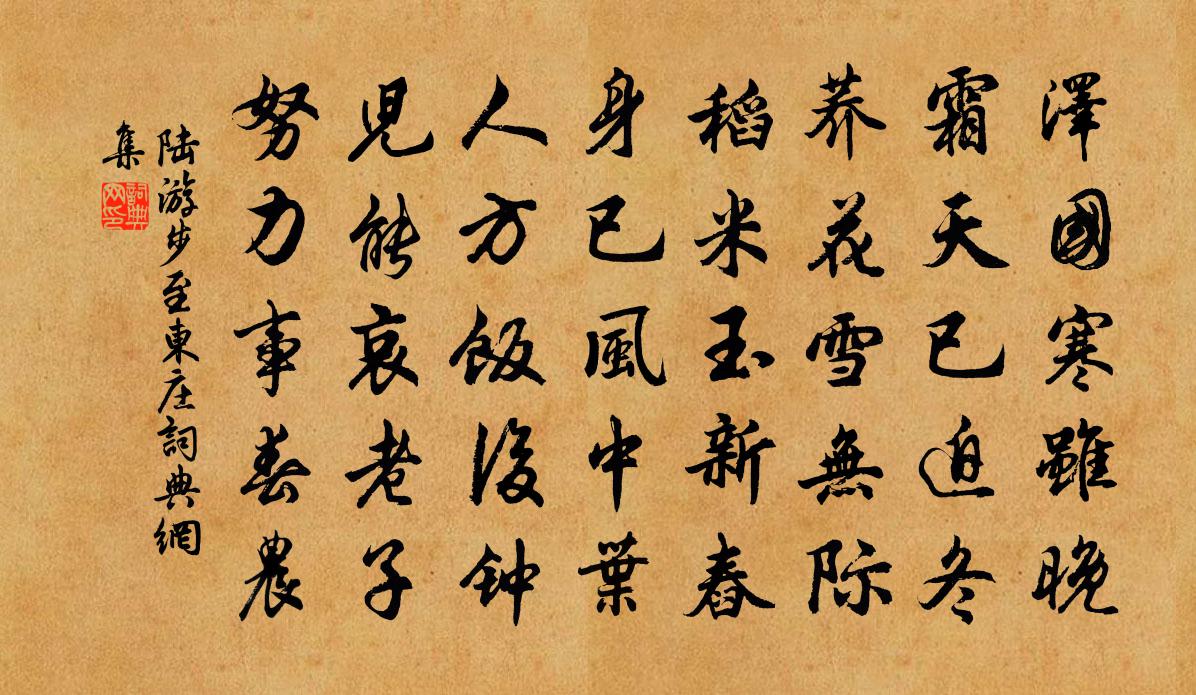 澤國寒雖晚
霜天已迫冬
荞花雪無际
稻米玉新舂
身已風中葉
人方飯後钟
兒能哀老子
努力事春農
陆游步至東庄詞典網
集
詞典网印